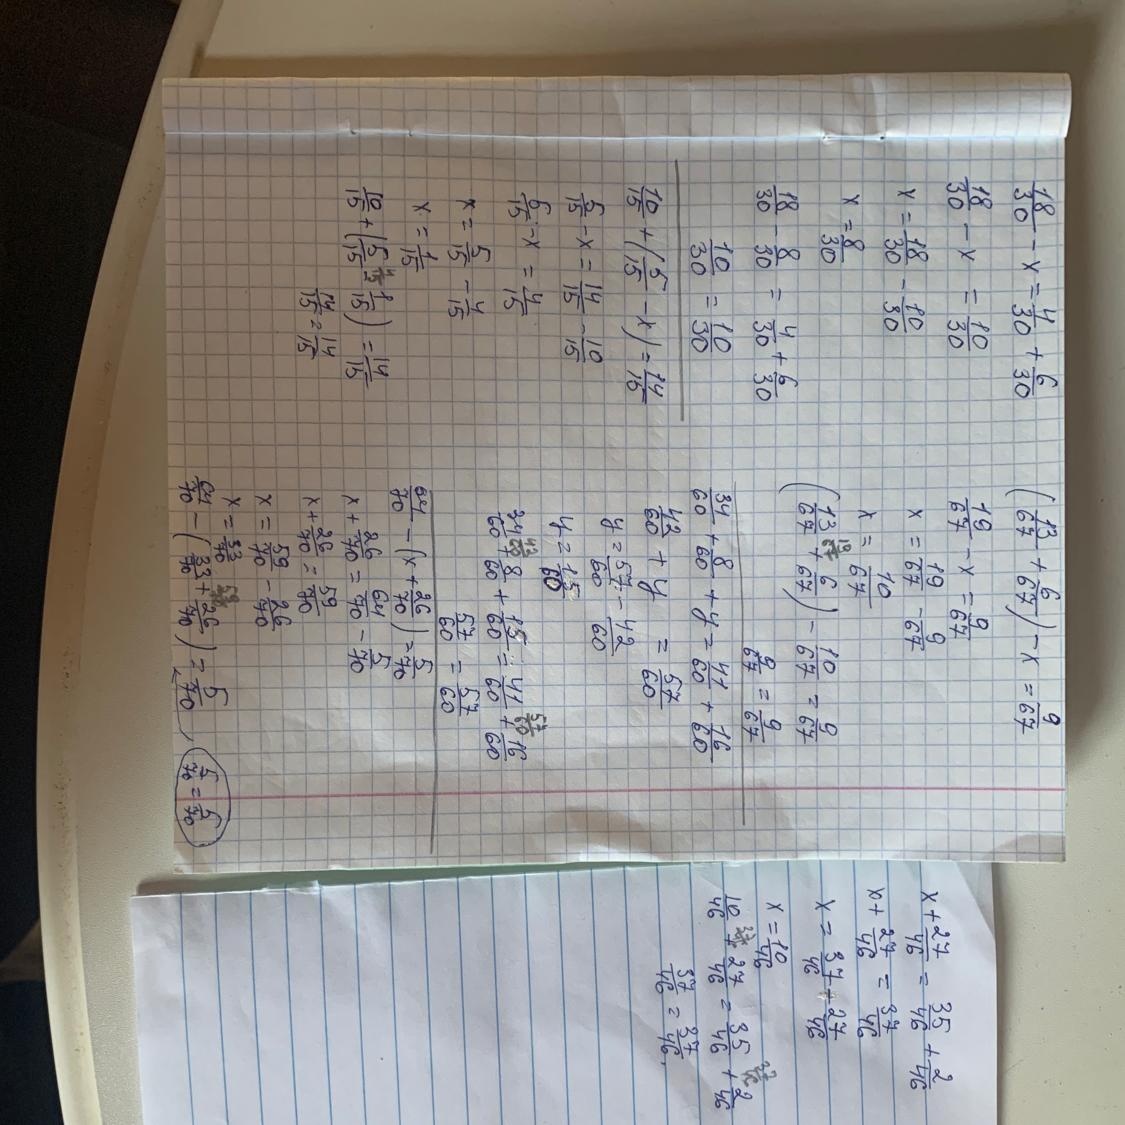 18/30 - x = 4/30 + 6/30
18/30 - x = 10/30
x = 18/30 - 10/30
x = 8/30
18/30 - 8/30 = 4/30 + 6/30
10/30 = 10/30
10/15 + (5/15 - x) = 14/15
5/15 - x = 14/15 - 10/15
5/15 - x = 4/15
x = 5/15 - 4/15
x = 1/15
10/15 + (5/15 - 1/15) = 14/15
4/15
14/15 = 14/15
(13/67 + 6/67) - x = 9/67
19/67 - x = 9/67
x = 19/67 - 9/67
x = 10/67
19/67
(13/67 + 6/67) - 10/67 = 9/67
9/67 = 9/67
34/60 + 8/60 + y = 41/60 + 16/60
42/60 + y = 57/60
y = 57/60 - 42/60
y = 15/60
42/60 57/60
34/60 + 8/60 + 15/60 = 41/60 + 16/60
57/60 = 57/60
64/70 - (x + 26/70) = 5/70
x + 26/70 = 64/70 - 5/70
x + 26/70 = 59/70
x = 59/70 - 26/70
x = 33/70
64/70 - (33/70 + 26/70) = 5/70
5/70 = 5/70
x + 27/46 = 35/46 + 2/46
x + 27/46 = 37/46
x = 37/46 - 27/46
x = 10/46
10/46 + 27/46 = 35/46 + 2/46
37/46 = 37/46